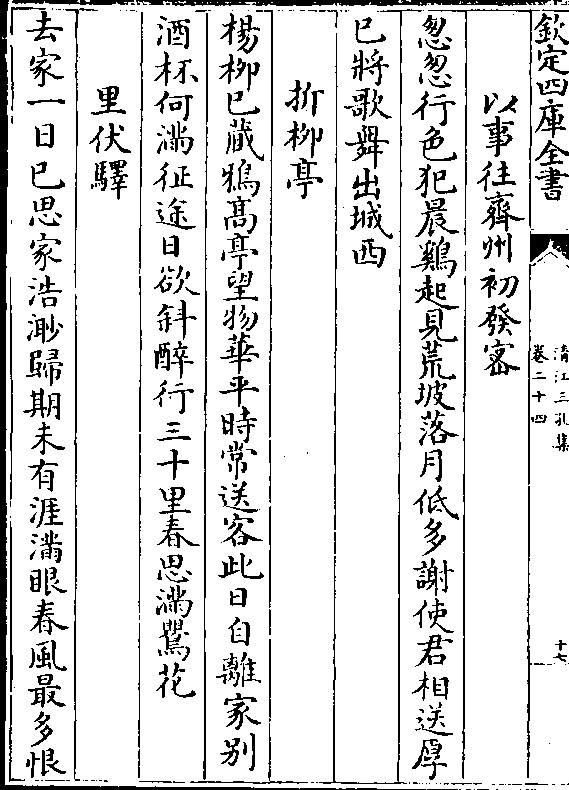 欽定四庫全書
清江三孔集
卷二十四
十七
以事往齊州初發密
怱怱行色犯晨鷄起見荒坡落月低多謝使君相送厚
已將歌舞出城西
折栁亭
楊栁已藏鴉髙亭望物華平時常送客此日自離家别
酒杯何滿征途日欲斜醉行三十里春思滿鸎花
里伏驛
去家一日已思家浩渺歸期未有涯滿眼春風最多恨